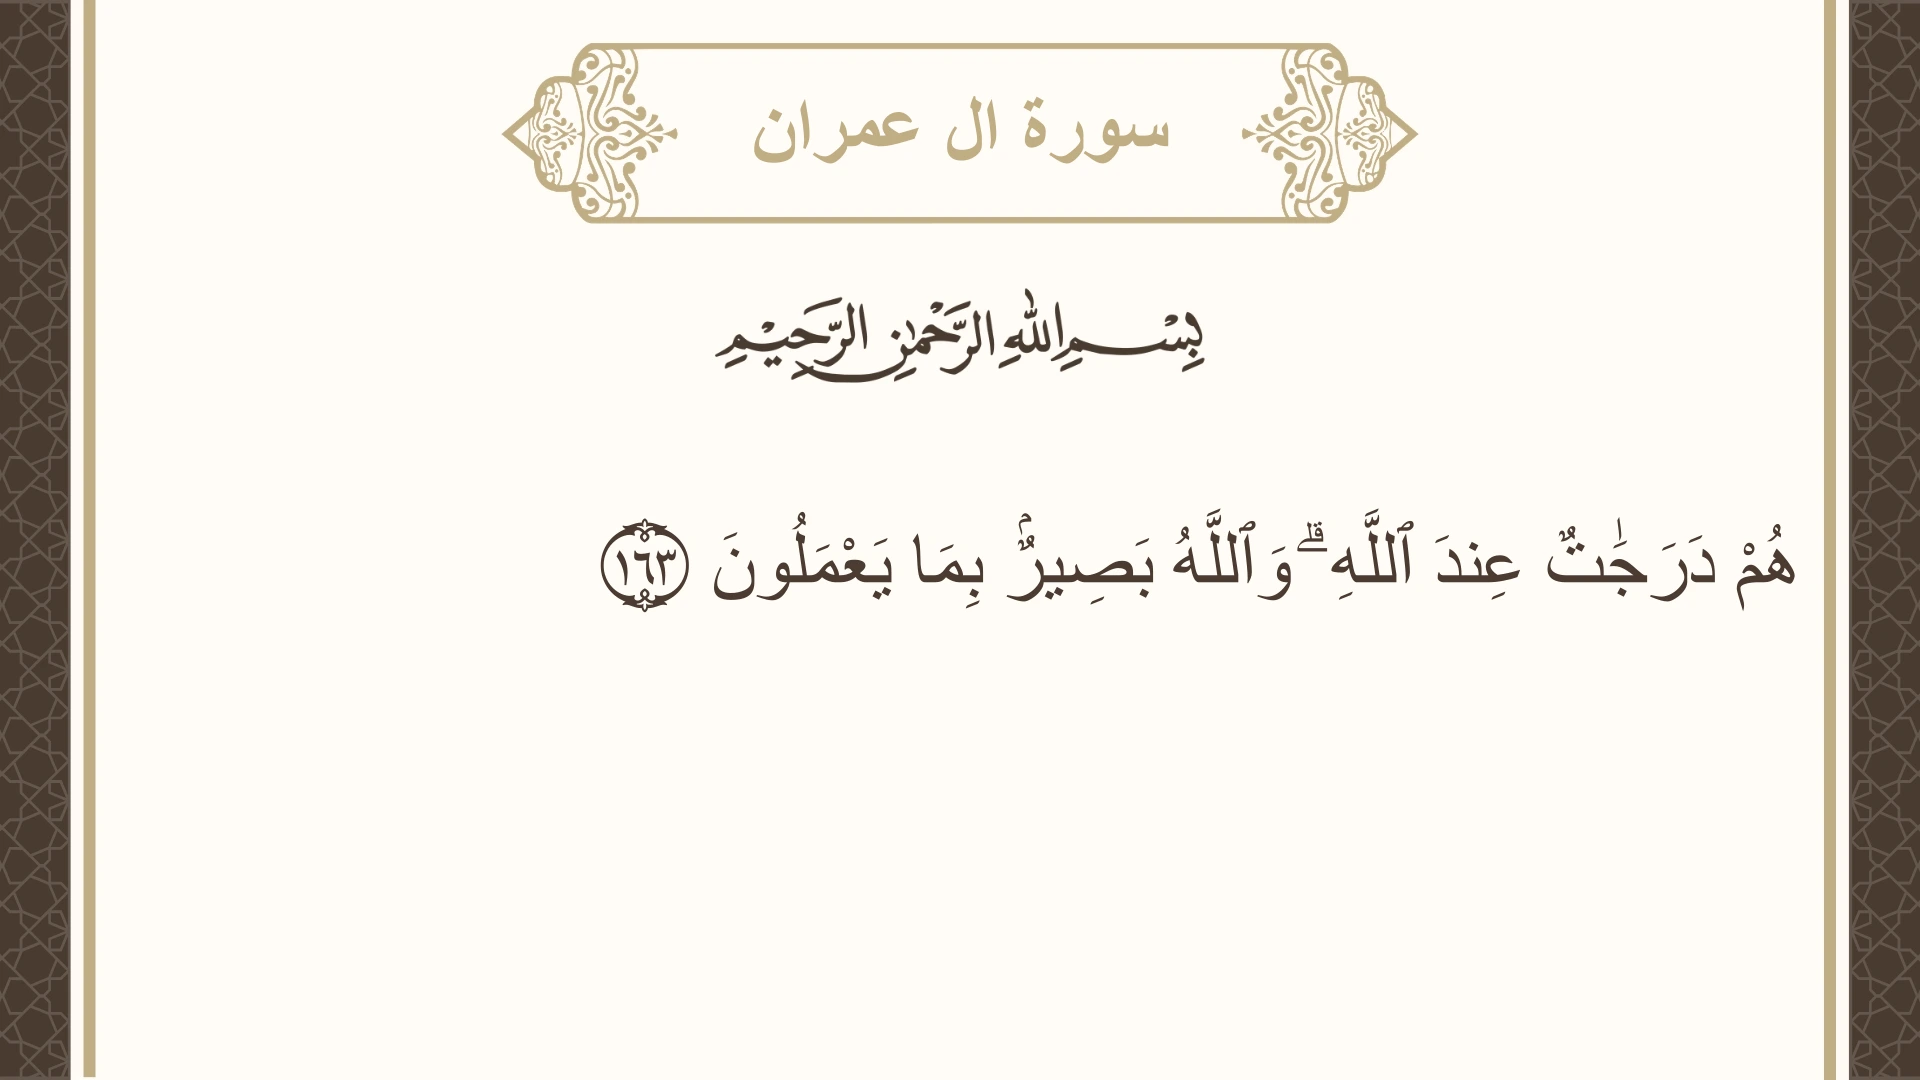 سورة ال عمران
بِسْمِ اللهِ الرَّحْمٰنِ الرَّحِيْمِ
هُمْ دَرَجَٰتٌ عِندَ ٱللَّهِ ۗ وَٱللَّهُ بَصِيرٌۢ بِمَا يَعْمَلُونَ ١٦٣